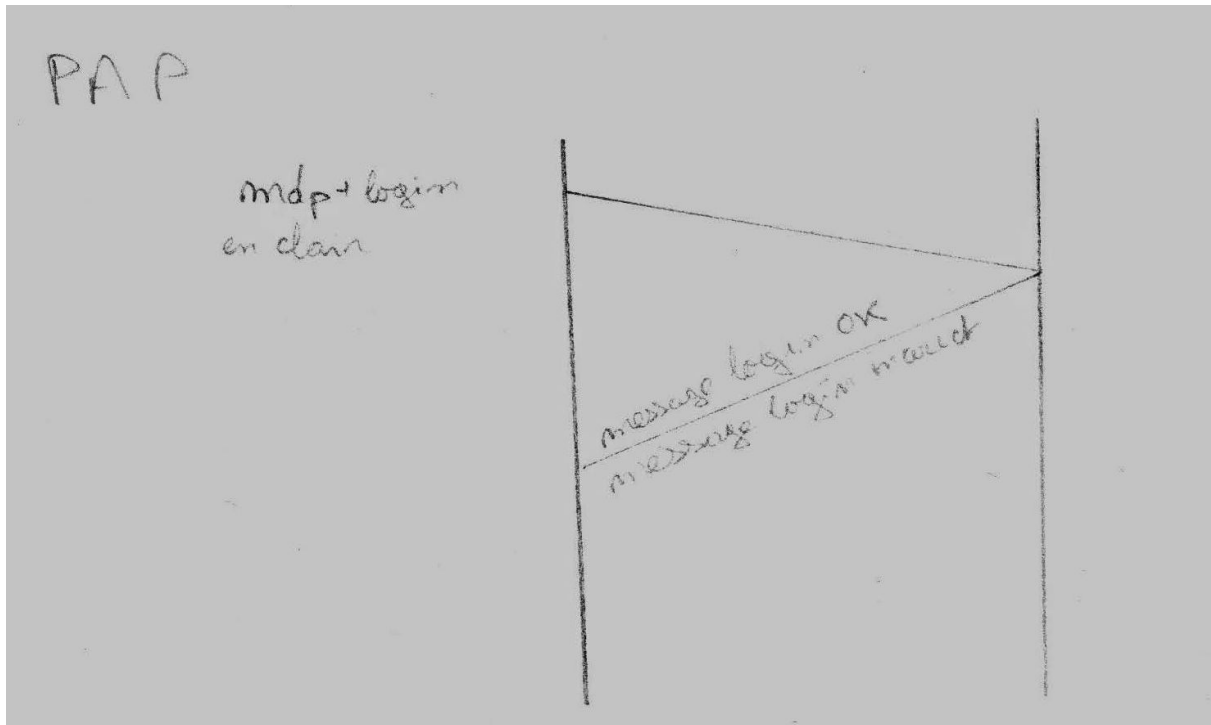 PAP
mdp + login
en clair
message login OK
message login